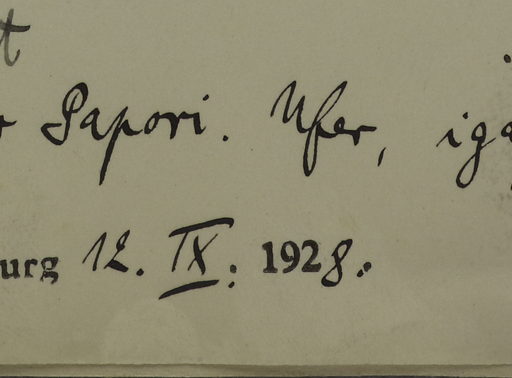 t
r Papori. Ufer, iga
urg 12. IX. 1928.